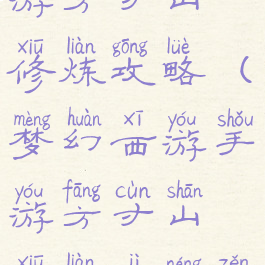 游方寸山
xiū liàn gōng lüè
修炼攻略（
mèng huàn xī yóu shǒu
梦幻西游手
yóu fāng cùn shān
游方寸山
xiū liàn jì néng zěn